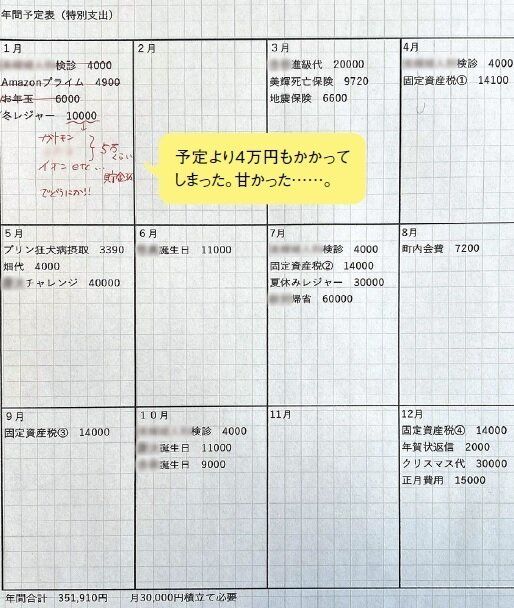 年間予定表（特別支出）
1月
検診 4000
Amazonプライム 4900
お年玉 6000
冬レジャー 10000
ガトキン
5万
くらい
イオン etc…
貯金
でどうにか!!
予定より4万円もかかって
しまった。甘かった……。
2月
3月
進級代 20000
美輝死亡保険 9720
地震保険 6600
4月
検診 4000
固定資産税① 14100
5月
プリン狂犬病摂取 3390
畑代 4000
チャレンジ 40000
6月
誕生日 11000
7月
検診 4000
固定資産税② 14000
夏休みレジャー 30000
帰省 60000
8月
町内会費 7200
9月
固定資産税③ 14000
10月
検診 4000
誕生日 11000
誕生日 9000
11月
12月
固定資産税④ 14000
年賀状返信 2000
クリスマス代 30000
正月費用 15000
年間合計 351,910円 月30,000円積立て必要